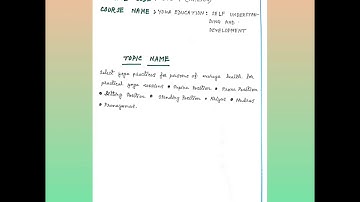 COURSE NAME : YOGA EDUCATION : SELF UNDERSTAN-
DING AND
DEVELOPMENT
TOPIC NAME
Select yoga practices for persons of average health for
practical yoga sessions • Supine Position • Prone Position
• Sitting Position • Standing Position • Kriyas • Mudras
• Pranayamas.